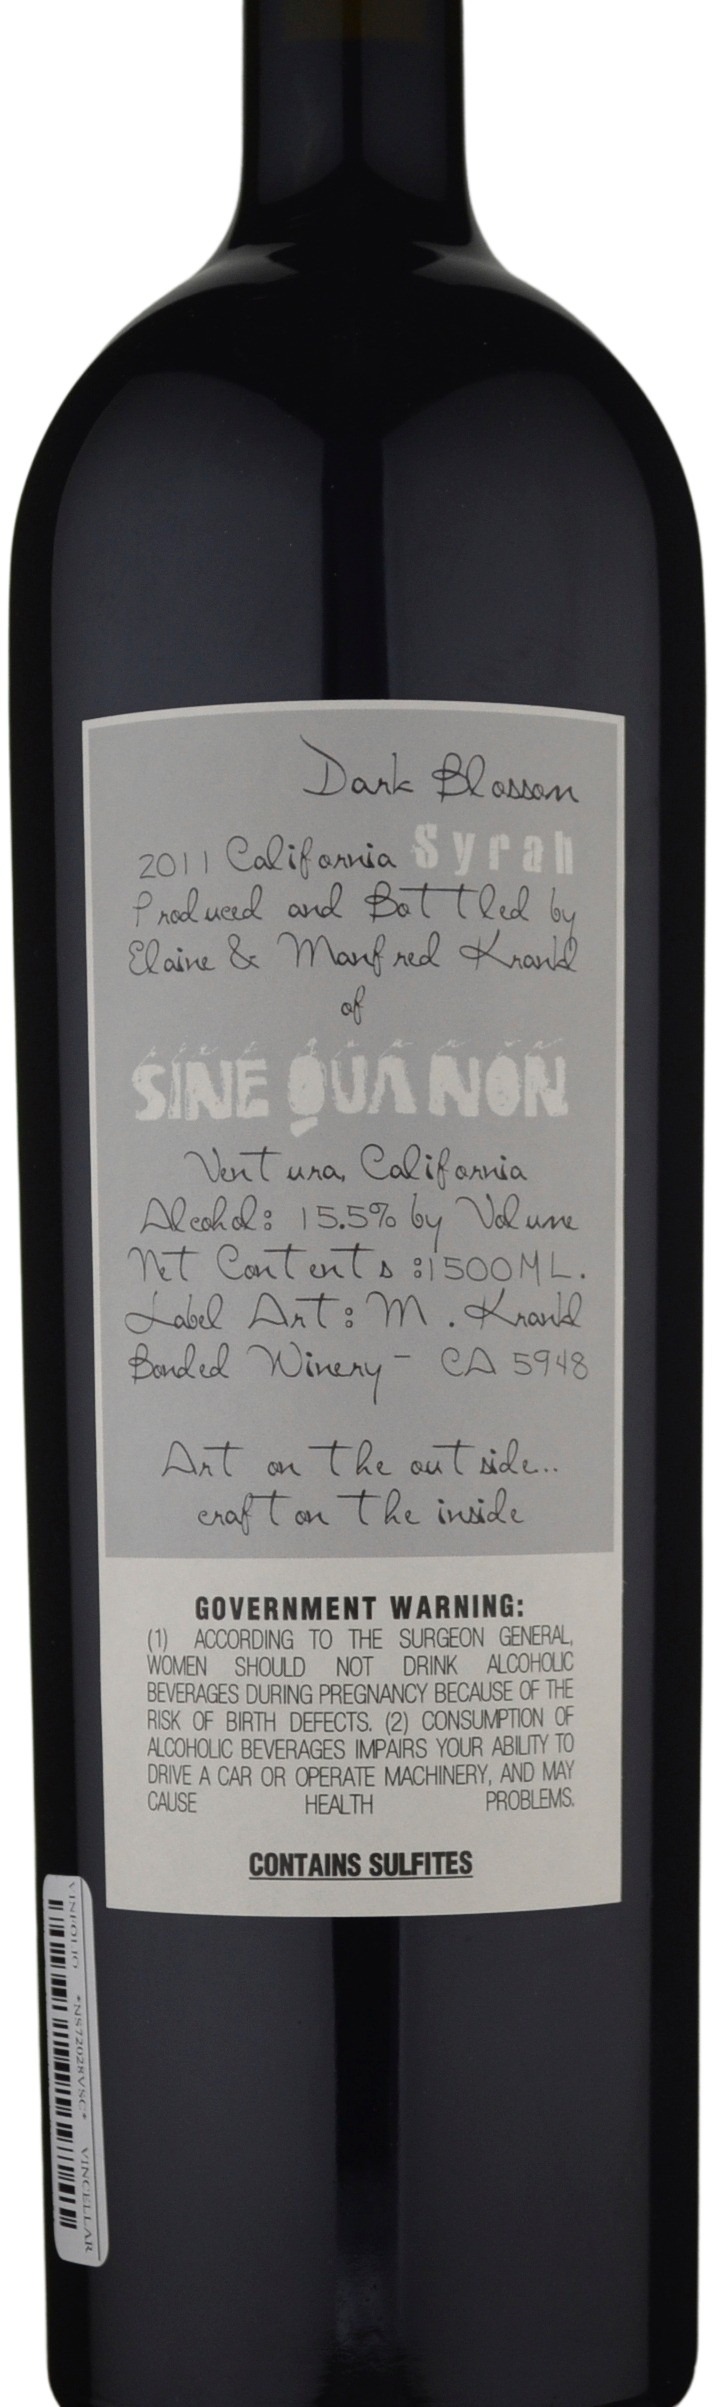 Dark Blossom
2011 California Syrah
Produced and Bottled by
Elaine & Manfred Krankl
of
SINE QUA NON
Ventura, California
Alcohol: 15.5% by Volume
Net Contents :1500ML.
Label Art: M. Krankl
Bonded Winery - CA 5948
Art on the outside..
craft on the inside
GOVERNMENT WARNING:
(1) ACCORDING TO THE SURGEON GENERAL,
WOMEN SHOULD NOT DRINK ALCOHOLIC
BEVERAGES DURING PREGNANCY BECAUSE OF THE
RISK OF BIRTH DEFECTS. (2) CONSUMPTION OF
ALCOHOLIC BEVERAGES IMPAIRS YOUR ABILITY TO
DRIVE A CAR OR OPERATE MACHINERY, AND MAY
CAUSE HEALTH PROBLEMS.
CONTAINS SULFITES
VINFOLIO *NS72028VSC* VINCELLAR